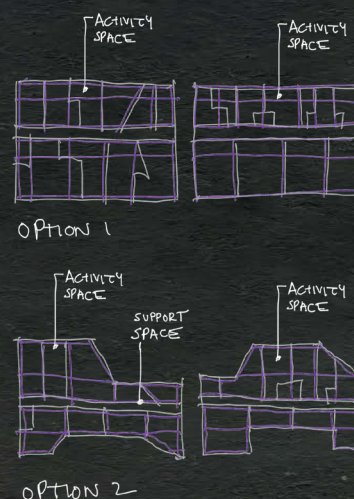 ACTIVITY
SPACE
ACTIVITY
SPACE
OPTION 1
ACTIVITY
SPACE
SUPPORT
SPACE
ACTIVITY
SPACE
OPTION 2